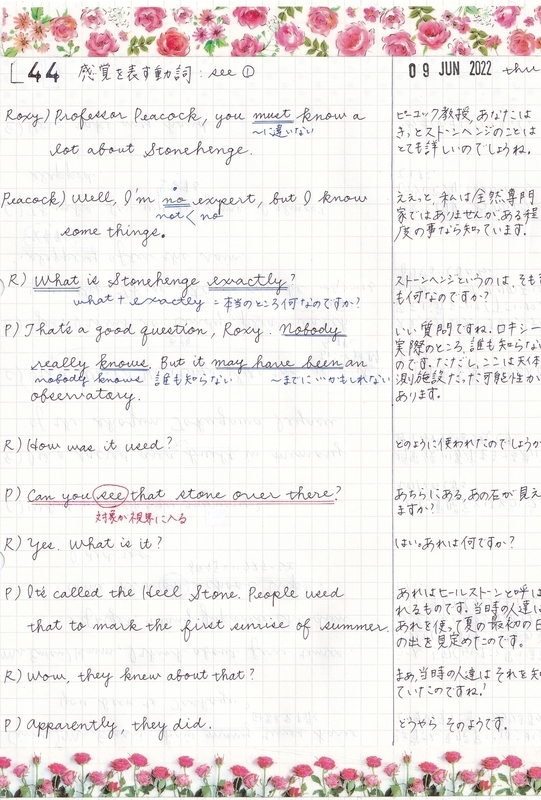 L44 感覚を表す動詞 : see ①
09 JUN 2022 thu
Roxy) Professor Peacock, you must know a
〜に違いない
lot about Stonehenge.
ピーコック教授, あなたは
きっとストーンヘンジのことは
とても詳しいのでしょうね.
Peacock) Well, I'm no expert, but I know
not < no
some things.
ええっと, 私は全然専門
家ではありませんが, ある程
度の事なら知っています.
R) What is Stonehenge exactly?
what + exactly = 本当のところ何なのですか?
ストーンヘンジというのは, そもそ
も何なのですか?
P) That's a good question, Roxy. Nobody
really knows. But it may have been an
nobody knows 誰も知らない 〜までにいかもしれない
observatory.
いい質問ですね, ロキシー
実際のところ, 誰も知らない
のです. ただし, ここは天体
測施設だった可能性が
あります.
R) How was it used?
どのように使われたのでしょうか
P) Can you see that stone over there?
対象が視界に入る
あちらにある, あの石が見え
ますか?
R) Yes. What is it?
はい。あれは何ですか?
P) It's called the Heel Stone. People used
that to mark the first sunrise of summer.
あれはヒールストーンと呼ば
れるものです. 当時の人達は
あれを使って夏の最初の日
の出を見定めたのです.
R) Wow, they knew about that?
まぁ, 当時の人達は それを知
ていたのですね!
P) Apparently, they did.
どうやら そのようです.